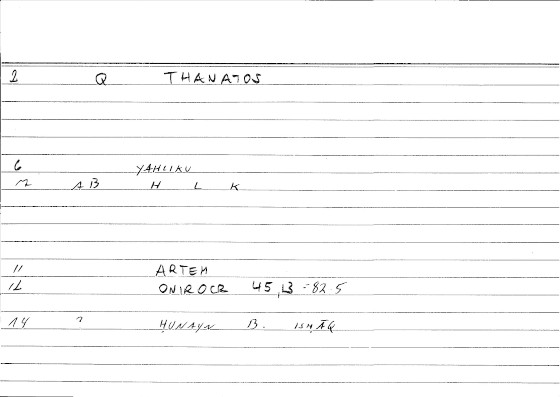 1 Q THANATOS
6 YAHLIKU
7 AB H L K
11 ARTEM
12 ONIROCR 45,13 - 82.5
14 ? ḤUNAYN B. ISḤĀQ